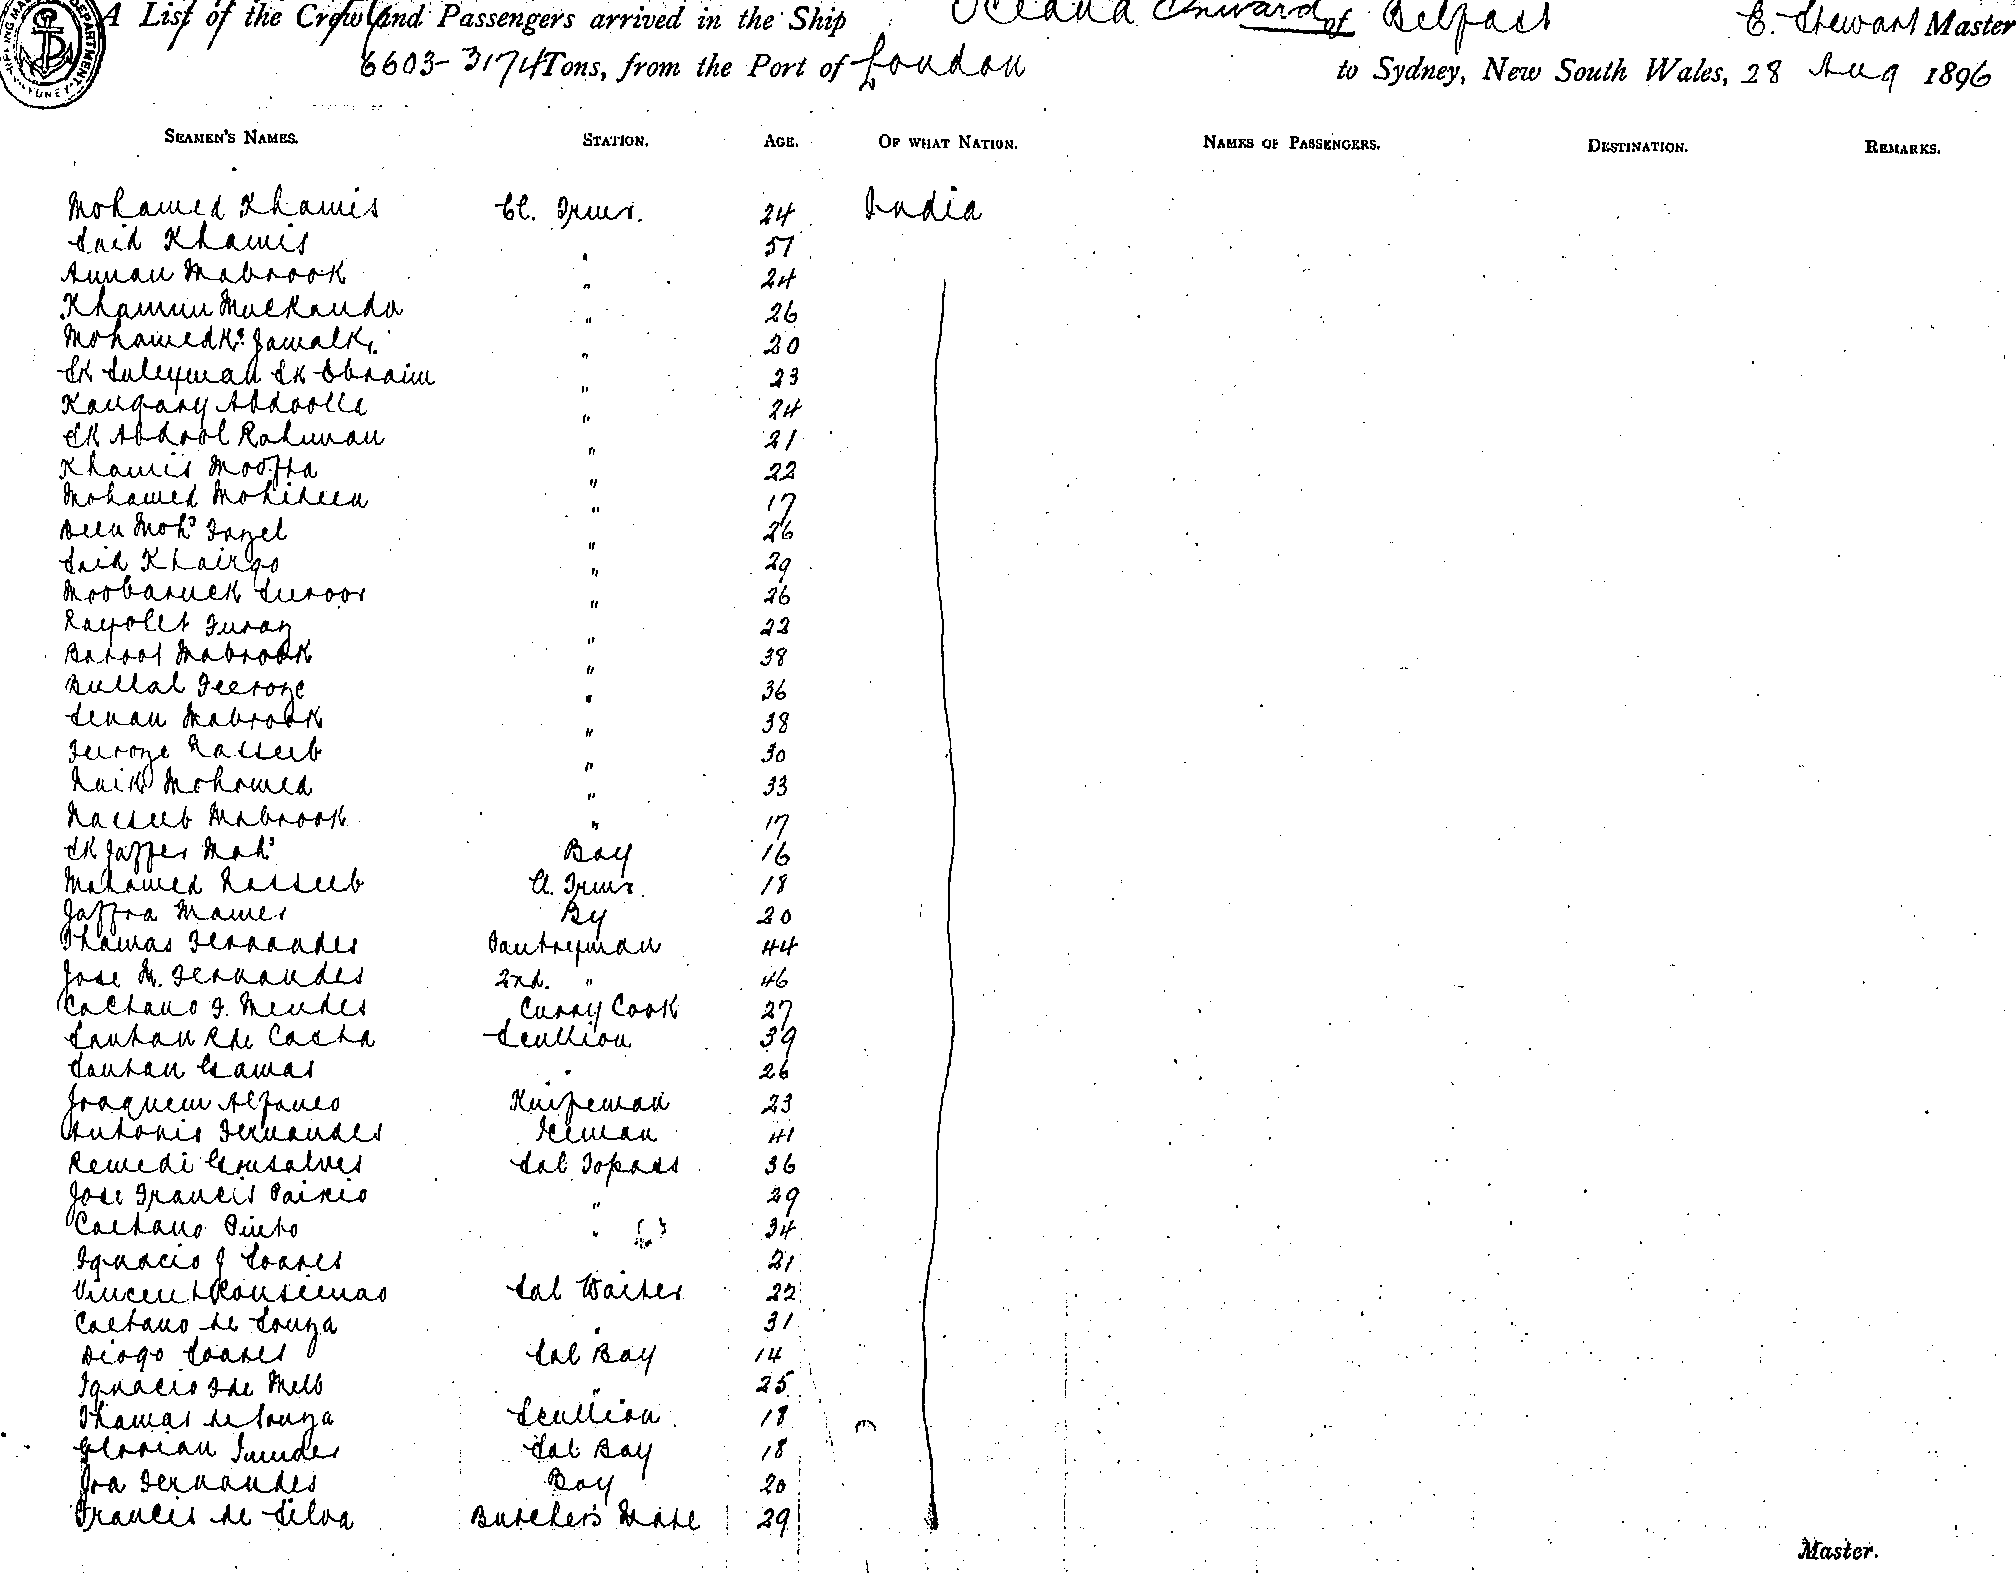 A List of the Crew and Passengers arrived in the Ship Oceana Onward of Belfast E. Stewart Master
6603-3174 Tons, from the Port of London to Sydney, New South Wales, 28 Aug 1896
SEAMEN'S NAMES. STATION. AGE. OF WHAT NATION. NAMES OF PASSENGERS. DESTINATION. REMARKS.
Mohamed Khamis Cl. Trmr. 24 India
Said Khamis " 51
Annan Mabrook " 24
Khamun Muckanda " 26
Mohamed Jamalk " 20
Sk Suleyman Sk Ebraim " 23
Kangary Abdoolla " 24
Sk Abdool Rahuman " 21
Khamis Moofta " 22
Mohamed Mohideen " 17
Deen Moh'd Fazel " 26
Said Khairgo " 29
Moobaruck Suroor " 26
Furaz " 22
Mabrook " 38
Bullal Feeroze " 36
Senan Mabrook " 38
Feeroze Nasseeb " 30
Naik Mohamed " 33
Nasseeb Mabrook " 17
Sk Jaffer Moh'd Boy 16
Mohamed Nasseeb Cl. Trmr. 18
Jaffra Mames By 20
Thomas Fernandes Pantryman 44
Jose M. Fernandes 2nd. " 46
Caetano F. Mendes Curry Cook 27
Santan R de Costa Scullion 39
Santan Gamas " 26
Joaquem Alfanco Knifeman 23
Antonio Fernandes Iceman 41
Remedi Gonsalves Sal Topass 36
Jose Francis " 29
Caetano Pinto " 34
Ignacio J Soares 21
Vincent Sal Waiter 22
Caetano de Souza " 31
Diogo Soares Sal Boy 14
Ignacio J de Mello " 25
Thomas de Souza Scullion 18
Florian Sal Boy 18
Joa Fernandes Boy 20
Francis de Silva Butcher's Mate 29
Master.